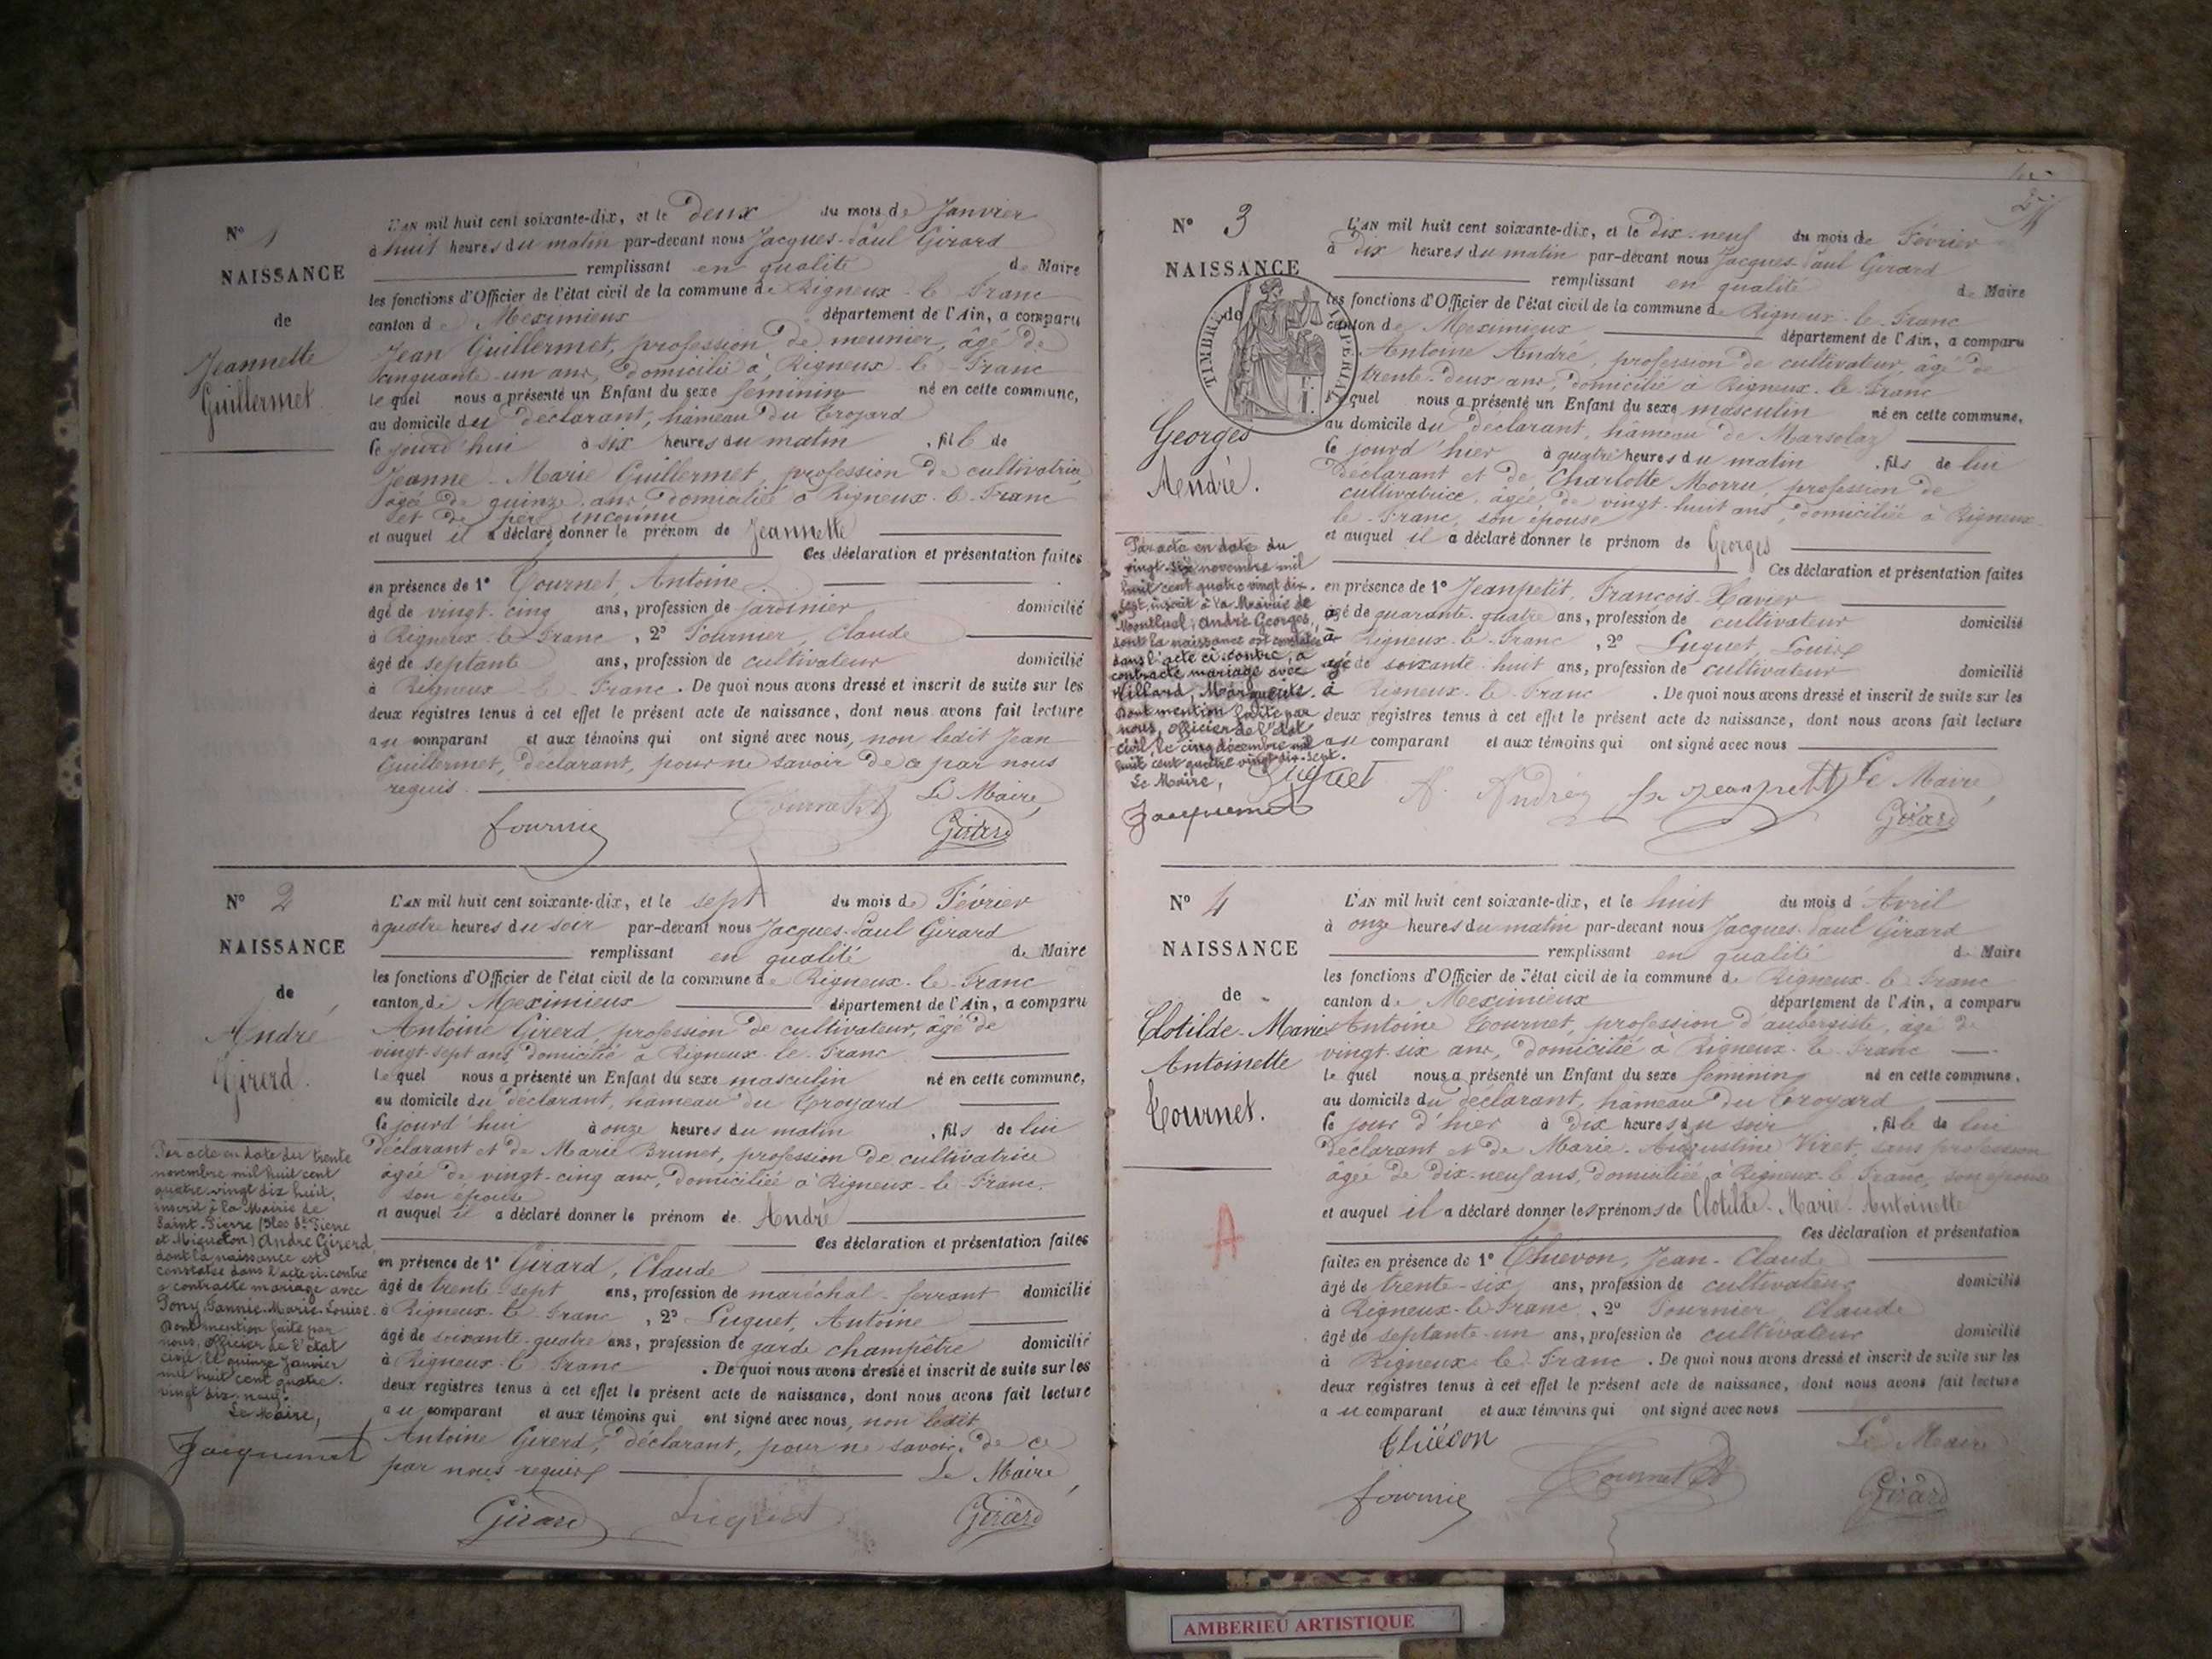 N° 1
NAISSANCE
de
Jeannette
Guillermet
L'AN mil huit cent soixante-dix, et le deux du mois de Janvier
à huit heures du matin par-devant nous Jacques-Paul Girard
remplissant en qualité de Maire
les fonctions d'Officier de l'état civil de la commune de Rigneux-le-Franc
canton de Meximieux département de l'Ain, a comparu
Jean Guillermet, profession de meunier, âgé de
cinquante-un ans, domicilié à Rigneux-le-Franc
lequel nous a présenté un Enfant du sexe féminin né en cette commune,
au domicile du déclarant, hameau du Troyard
ce jourd'hui à six heures du matin, fille de
Jeanne-Marie Guillermet, profession de cultivatrice
âgée de quinze ans, domiciliée à Rigneux-le-Franc
et de père inconnu
et auquel il a déclaré donner le prénom de Jeannette
Ces déclaration et présentation faites
en présence de 1° Tournet, Antoine
âgé de vingt-cinq ans, profession de jardinier domicilié
à Rigneux-le-Franc, 2° Fournier, Claude
âgé de septante ans, profession de cultivateur domicilié
à Rigneux-le-Franc. De quoi nous avons dressé et inscrit de suite sur les
deux registres tenus à cet effet le présent acte de naissance, dont nous avons fait lecture
au comparant et aux témoins qui ont signé avec nous, non ledit Jean
Guillermet, déclarant, pour ne savoir de ce par nous
requis.
Le Maire,
fournier Tournet Girard
N° 2
NAISSANCE
de
André
Girerd.
L'AN mil huit cent soixante-dix, et le sept du mois de Février
à quatre heures du soir par-devant nous Jacques-Paul Girard
remplissant en qualité de Maire
les fonctions d'Officier de l'état civil de la commune de Rigneux-le-Franc
canton de Meximieux département de l'Ain, a comparu
Antoine Girerd, profession de cultivateur, âgé de
vingt-sept ans domicilié à Rigneux-le-Franc
lequel nous a présenté un Enfant du sexe masculin né en cette commune,
au domicile du déclarant, hameau du Troyard
ce jourd'hui à onze heures du matin, fils de lui
déclarant et de Marie Brunet, profession de cultivatrice
âgée de vingt-cinq ans, domiciliée à Rigneux-le-Franc,
son épouse
et auquel il a déclaré donner le prénom de André
Ces déclaration et présentation faites
en présence de 1° Girard, Claude
âgé de trente-sept ans, profession de maréchal-ferrant domicilié
à Rigneux-le-Franc, 2° Luguet, Antoine
âgé de soixante-quatre ans, profession de garde champêtre domicilié
à Rigneux-le-Franc. De quoi nous avons dressé et inscrit de suite sur les
deux registres tenus à cet effet le présent acte de naissance, dont nous avons fait lecture
au comparant et aux témoins qui ont signé avec nous, non ledit
Antoine Girerd, déclarant, pour ne savoir de ce
par nous requis
Le Maire,
Girard Luguet Girard
Par acte en date du trente
novembre mil huit cent
quatre-vingt dix huit,
inscrit à la Mairie de
Saint-Pierre (Iles St Pierre
et Miquelon) André Girerd,
dont la naissance est
constatée dans l'acte ci-contre
a contracté mariage avec
Pony, Fannie-Marie-Louise.
Dont mention faite par
nous, Officier de l'état
civil le quinze Janvier
mil huit cent quatre-
vingt dix-neuf.
Le Maire,
Jacquemet
N° 3
NAISSANCE
de
TIMBRE IMPÉRIAL
Georges
André.
L'AN mil huit cent soixante-dix, et le dix-neuf du mois de Février
à dix heures du matin par-devant nous Jacques-Paul Girard
remplissant en qualité de Maire
les fonctions d'Officier de l'état civil de la commune de Rigneux-le-Franc
canton de Meximieux département de l'Ain, a comparu
Antoine André, profession de cultivateur, âgé de
trente-deux ans, domicilié à Rigneux-le-Franc
lequel nous a présenté un Enfant du sexe masculin né en cette commune,
au domicile du déclarant, hameau de Marsolaz
ce jourd'hier à quatre heures du matin, fils de lui
déclarant et de Charlotte Morru, profession de
cultivatrice, âgée de vingt-huit ans, domiciliée à Rigneux-
le-Franc, son épouse
et auquel il a déclaré donner le prénom de Georges
Ces déclaration et présentation faites
en présence de 1° Jeanpetit, François-Xavier
âgé de quarante-quatre ans, profession de cultivateur domicilié
à Rigneux-le-Franc, 2° Luguet, Louis
âgé de soixante-huit ans, profession de cultivateur domicilié
à Rigneux-le-Franc. De quoi nous avons dressé et inscrit de suite sur les
deux registres tenus à cet effet le présent acte de naissance, dont nous avons fait lecture
au comparant et aux témoins qui ont signé avec nous
Luguet A. André Jeanpetit Le Maire,
Girard
Par acte en date du
vingt-six novembre mil
huit cent quatre vingt dix-
sept, inscrit à la Mairie de
Montluel, André Georges,
dont la naissance est constatée
dans l'acte ci-contre, a
contracté mariage avec
Millard, Marguerite.
Dont mention faite par
nous, Officier de l'état
civil, le cinq décembre mil
huit cent quatre vingt-dix-sept.
Le Maire,
Jacquemet
N° 4
NAISSANCE
de
Clotilde-Marie
Antoinette
Tournet.
A
L'AN mil huit cent soixante-dix, et le huit du mois d'Avril
à onze heures du matin par-devant nous Jacques-Paul Girard
remplissant en qualité de Maire
les fonctions d'Officier de l'état civil de la commune de Rigneux-le-Franc
canton de Meximieux département de l'Ain, a comparu
Antoine Tournet, profession d'aubergiste, âgé de
vingt-six ans, domicilié à Rigneux-le-Franc
lequel nous a présenté un Enfant du sexe féminin né en cette commune,
au domicile du déclarant, hameau du Troyard
ce jour d'hier à dix heures du soir, fille de lui
déclarant et de Marie-Augustine Viret, sans profession
âgée de dix-neuf ans, domiciliée à Rigneux-le-Franc, son épouse
et auquel il a déclaré donner les prénoms de Clotilde-Marie-Antoinette
Ces déclaration et présentation
faites en présence de 1° Thievon, Jean-Claude
âgé de trente-six ans, profession de cultivateur domicilié
à Rigneux-le-Franc, 2° Fournier, Claude
âgé de septante-un ans, profession de cultivateur domicilié
à Rigneux-le-Franc. De quoi nous avons dressé et inscrit de suite sur les
deux registres tenus à cet effet le présent acte de naissance, dont nous avons fait lecture
au comparant et aux témoins qui ont signé avec nous
Thiévon Le Maire
fournier Tournet Girard
AMBERIEU ARTISTIQUE